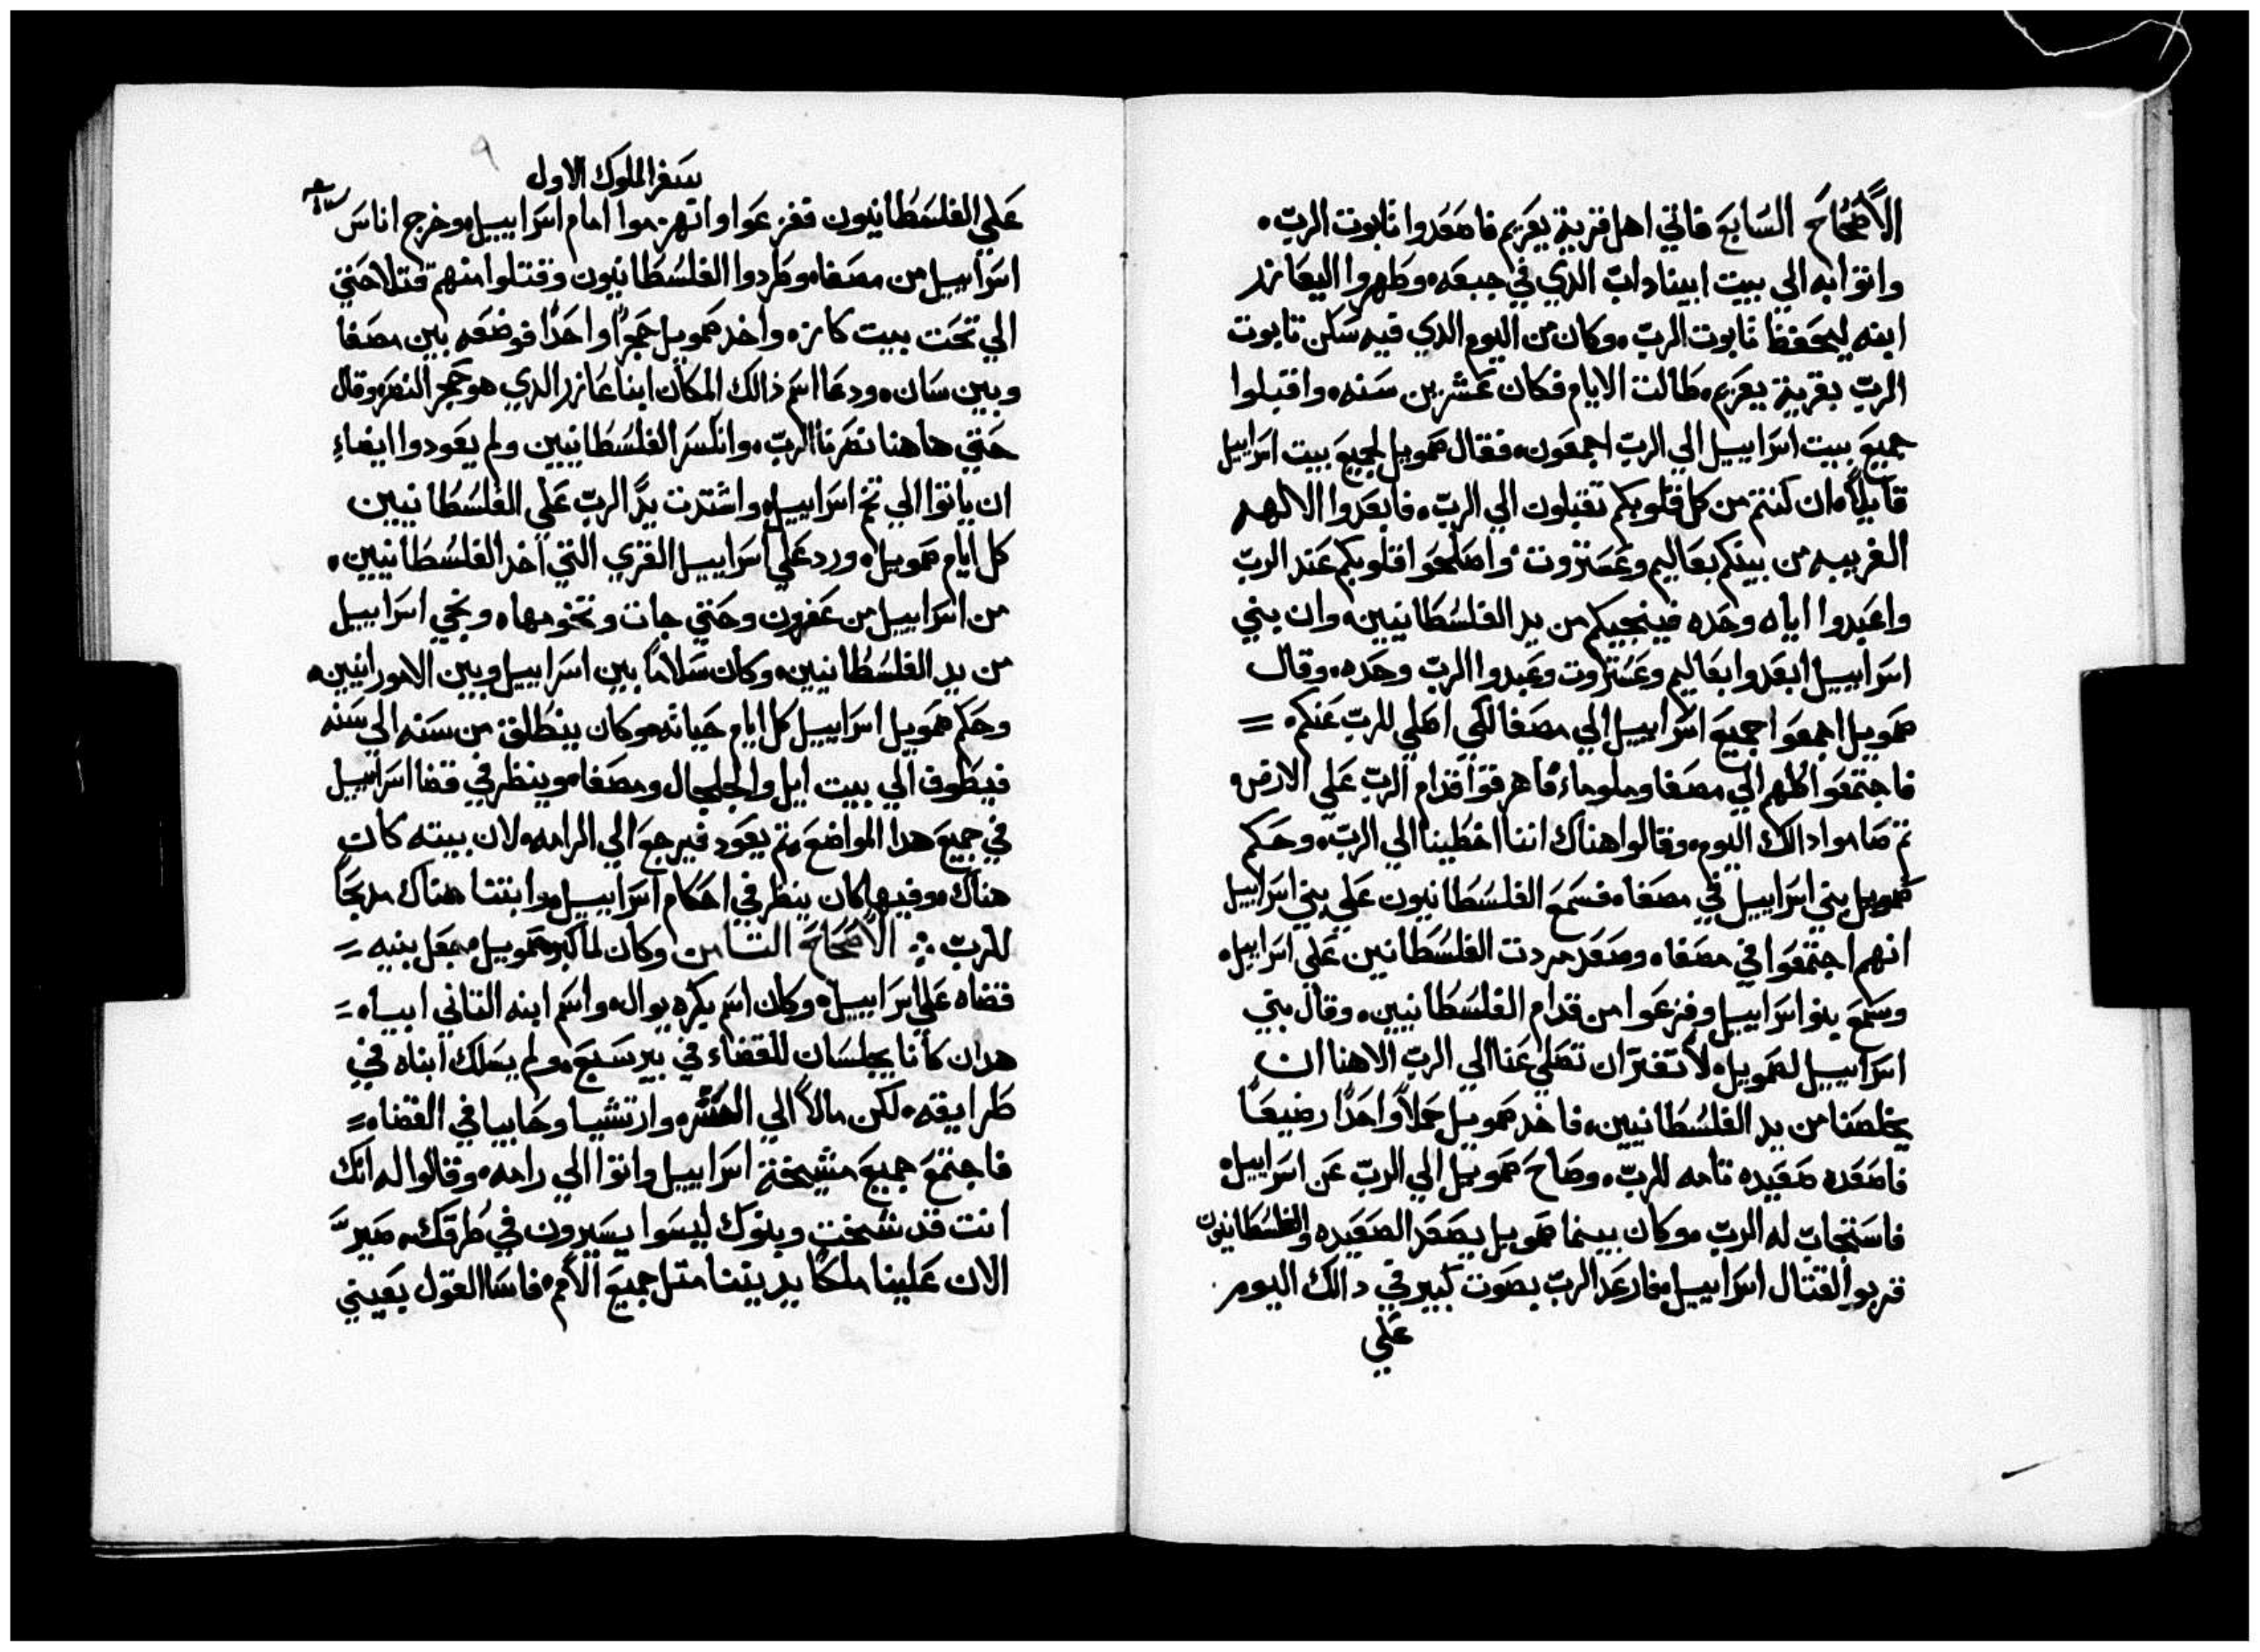 الاصحاح السابع فاتي اهل قرية يعريم فاصعدوا تابوت الرب.
واتوا به الي بيت ابيناداب الدي في جبعه. وطهروا اليعازر
ابنه ليحفظ تابوت الرب. وكان من اليوم الدي فيه سكن تابوت
الرب بقرية يعريم. طالت الايام فكان عشرين سنه. واقبلوا
جميع بيت اسراييل الي الرب اجمعون. فقال صمويل لجميع بيت اسراييل
قايلاً. ان كنتم من كل قلوبكم تقبلون الي الرب. فابعدوا الالهه
الغريبه من بينكم بعاليم وعستروت. واصلحوا قلوبكم عند الرب
واعبدوا اياه وحده فينجيكم من يد الفلسطانيين. وان بني
اسراييل ابعدوا بعاليم وعستروت وعبدوا الرب وحده. وقال
صمويل اجمعوا جميع اسراييل الي مصفا لكي اصلي للرب عنكم. =
فاجتمعوا كلهم الي مصفا وملوا ماء فاهرقوا قدام الرب علي الارض.
تم صاموا دالك اليوم. وقالوا هناك اننا اخطينا الي الرب. وحكم
صمويل بني اسراييل في مصفاه فسمع الفلسطانيون علي بني اسراييل
انهم اجتمعوا في مصفاه وصعد مردت الفلسطانين علي اسراييل.
وسمع بنو اسراييل وفزعوا من قدام الفلسطانيين. وقال بني
اسراييل لصمويل. لا تفتر ان تصلي عنا الي الرب الاهنا ان
يخلصنا من يد الفلسطانيين. فاخد صمويل حملاً واحداً رضيعاً
فاصعده صعيده تامه للرب. وصاح صمويل الي الرب عن اسراييل.
فاستجاب له الرب. وكان بينما صمويل يصعد الصعيده والفلسطانيون
قربوا لقتال اسراييل. فارعد الرب بصوت كبير في دالك اليوم
علي
سفر الملوك الاول
علي الفلسطانيون ففزعوا وانهزموا امام اسراييل. وخرج اناس
اسراييل من مصفا. وطردوا الفلسطانيون وقتلوا منهم قتلا حتي
الي تحت بيت كازه. واخد صمويل حجراً واحداً فوضعه بين مصفا
وبين سان. ودعا اسم ذالك المكان ابنا عازر الدي هو حجر النصر. وقال
حتي هاهنا نصرنا الرب. وانكسر الفلسطانيين ولم يعودوا ايضاء
ان ياتوا الي تخم اسراييل. واشتدت يد الرب علي الفلسطانيين
كل ايام صمويل. ورد علي اسراييل القري التي اخد الفلسطانيين.
من اسراييل من عفرون وحتي جات وتخومها. ونجي اسراييل
من يد الفلسطانيين. وكان سلاماً بين اسراييل وبين الامورانيين.
وحكم صمويل اسراييل كل ايام حياته. وكان ينطلق من سنه الي سنه
فيطوف الي بيت ايل والجلجال ومصفا. وينظر في قضا اسراييل
في جميع هدا المواضع. تم يعود فيرجع الي الرامه. لان بيته كان
هناك. وفيها كان ينظر في احكام اسراييل. وابتنا هناك مدبحاً
للرب ܀ الاصحاح التامن وكان لما كبر صمويل. جعل بنيه =
قضاه علي اسراييل. وكان اسم بكره يوال. واسم ابنه التاني ابياه =
هدان كانا يجلسان للقضاء في بير سبع. ولم يسلك ابناه في
طرايقه. لكن مالاً الي الحشره وارتشيا وحابيا في القضاه =
فاجتمع جميع مشيخة اسراييل واتوا الي رامه. وقالوا له انك
انت قد شخت وبنوك ليسوا يسيرون في طرقك. صير
الان علينا ملكاً يديننا متل جميع الامم. فاسا القول بعيني